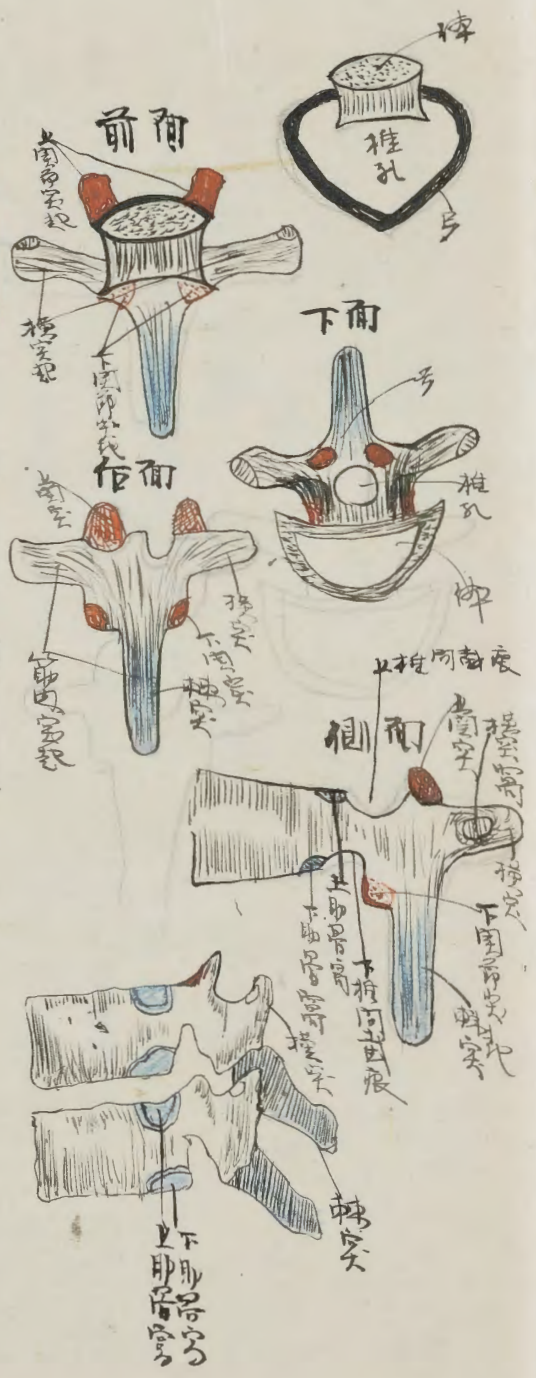 体
椎孔
弓
前面
上関節突起
横突起
下関節突起
下面
弓
椎孔
体
后面
上関突
横突
下関突
棘突
筋肉突起
側面
上関突
横突窩
横突
下関節突起
棘突
上肋骨窩
下肋骨窩
横突
棘突
上肋骨窩
下肋骨窩